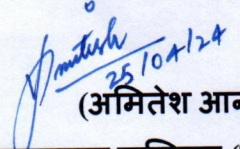 Amitesh
25/04/24
(अमितेश आन